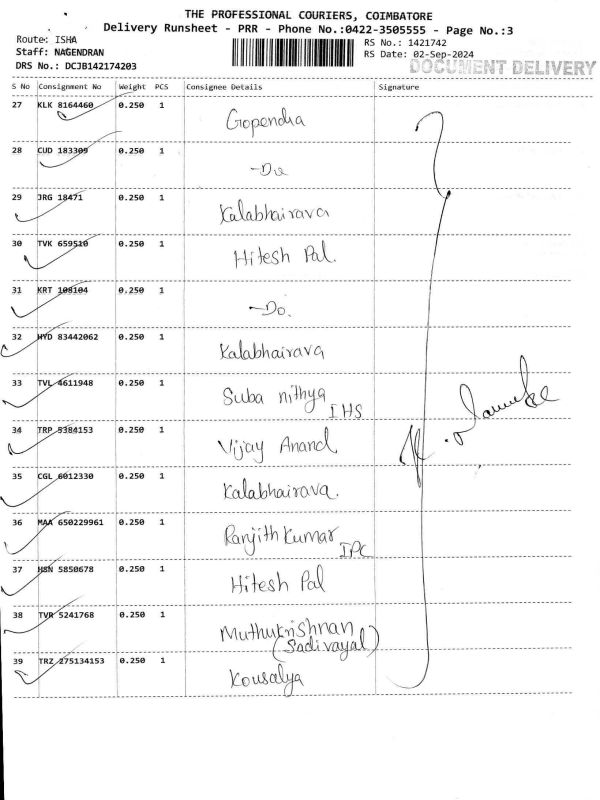 THE PROFESSIONAL COURIERS, COIMBATORE
Delivery Runsheet - PRR - Phone No.:0422-3505555 - Page No.:3
Route: ISHA
Staff: NAGENDRAN
DRS No.: DCJB142174203
RS No.: 1421742
RS Date: 02-Sep-2024
DOCUMENT DELIVERY
S No Consignment No Weight PCS Consignee Details Signature
27 KLK 8164460 0.250 1 Gopendra
28 CUD 183309 0.250 1 -Do
29 JRG 18471 0.250 1 Kalabhairava
30 TVK 659510 0.250 1 Hitesh Pal.
31 KRT 108104 0.250 1 -Do.
32 HYD 83442062 0.250 1 Kalabhairava
33 TVL 4611948 0.250 1 Suba nithya
IHS
34 TRP 5384153 0.250 1 Vijay Anand
35 CGL 6012330 0.250 1 Kalabhairava.
36 MAA 650229961 0.250 1 Ranjith Kumar
IPC
37 HSN 5850678 0.250 1 Hitesh Pal
38 TVR 5241768 0.250 1 Muthukrishnan
(Sadivayal)
39 TRZ 275134153 0.250 1 Kousalya